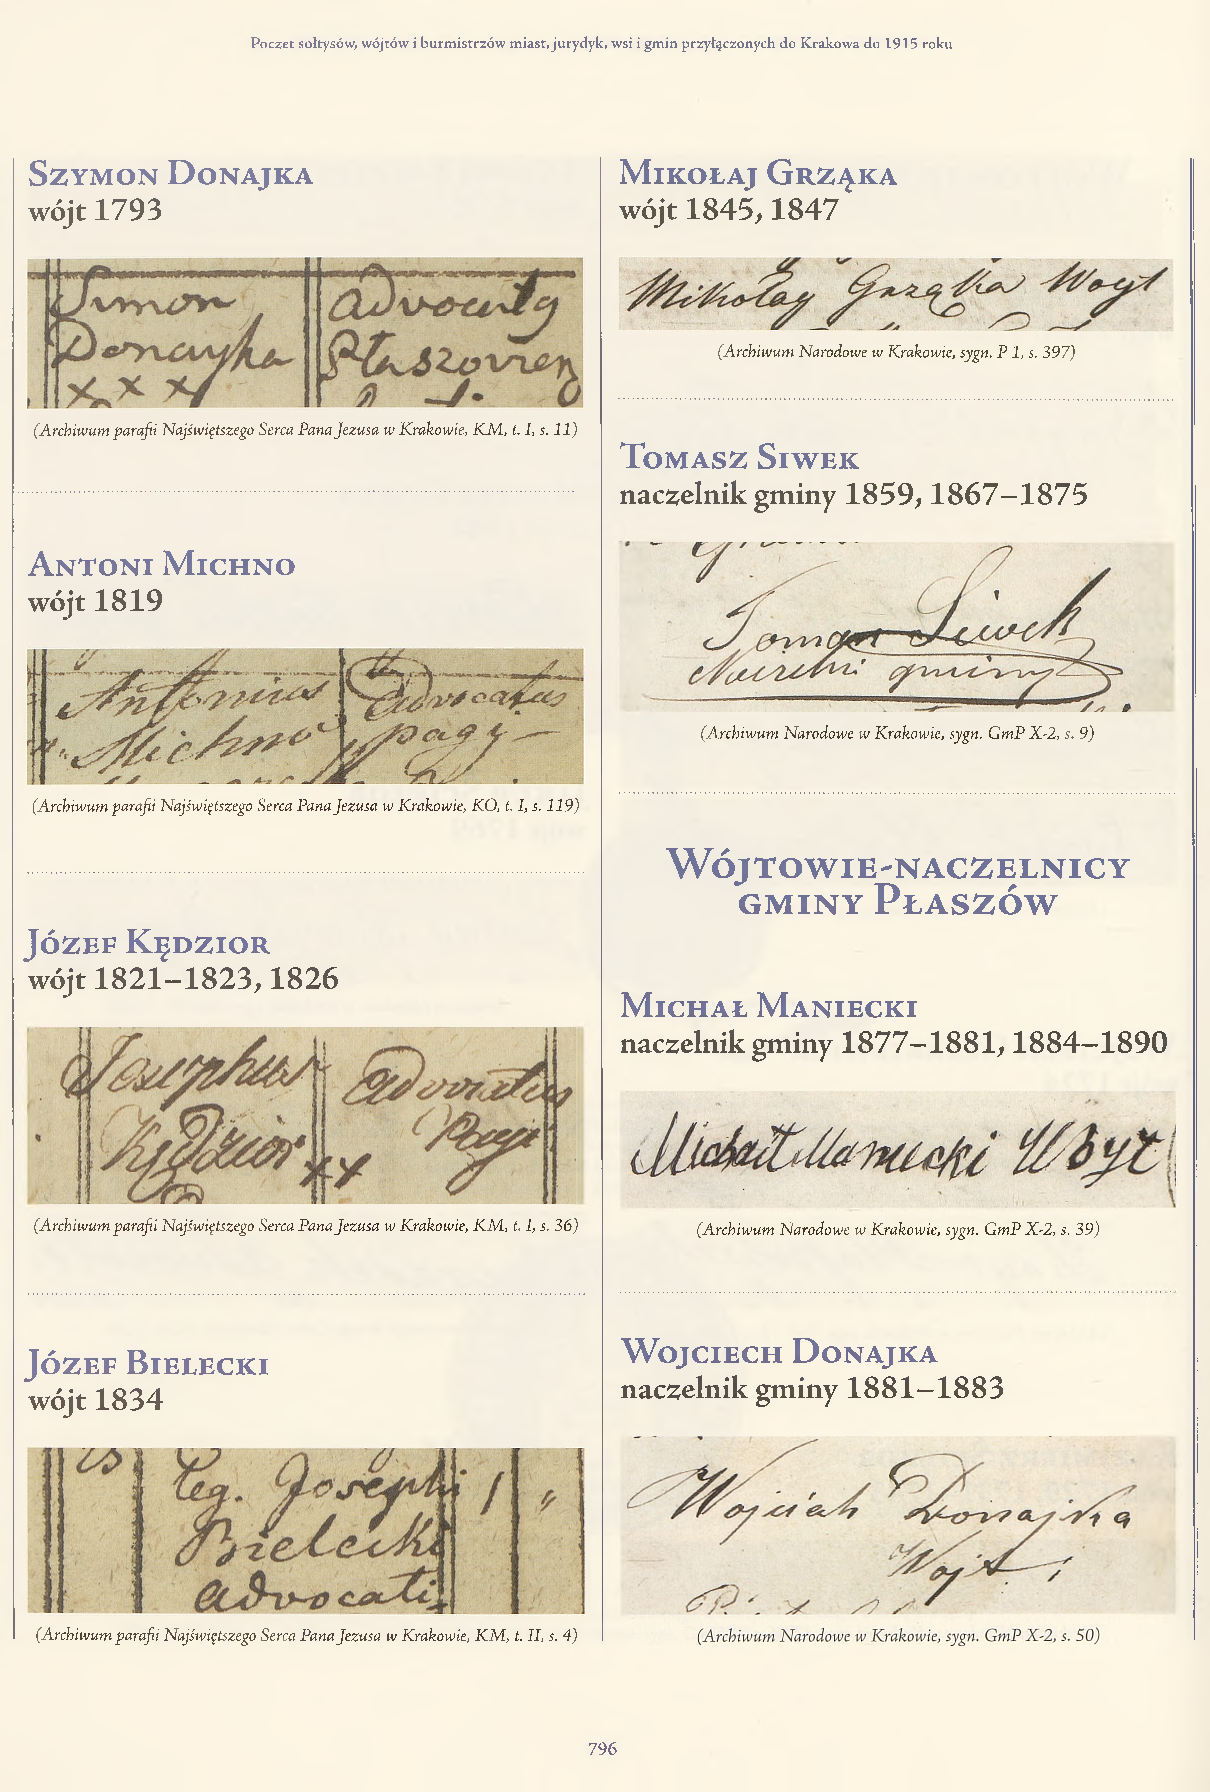 Poczet sołtysów, wójtów i burmistrzów miast, jurydyk, wsi i gmin przyłączonych do Krakowa do 1915 roku
Szymon Donajka
wójt 1793
Simon
Donayka
x x x
(Archiwum parafii Najświętszego Serca Pana Jezusa w Krakowie, KM, t. I, s. 11)
Antoni Michno
wójt 1819
Antonius
Michno
Advocatus
pagy
(Archiwum parafii Najświętszego Serca Pana Jezusa w Krakowie, KO, t. I, s. 119)
Józef Kędzior
wójt 1821–1823, 1826
Josephus
Kędzior
Advocatus
Pagi
(Archiwum parafii Najświętszego Serca Pana Jezusa w Krakowie, KM, t. I, s. 36)
Józef Bielecki
wójt 1834
leg. Josephi
Bielecki
advocati
(Archiwum parafii Najświętszego Serca Pana Jezusa w Krakowie, KM, t. II, s. 4)
Mikołaj Grząka
wójt 1845, 1847
Mikołay Grząka Woyt
(Archiwum Narodowe w Krakowie, sygn. P 1, s. 397)
Tomasz Siwek
naczelnik gminy 1859, 1867–1875
Siwek
gminy
(Archiwum Narodowe w Krakowie, sygn. GmP X-2, s. 9)
Wójtowie-naczelnicy
gminy Płaszów
Michał Maniecki
naczelnik gminy 1877–1881, 1884–1890
Woyt
(Archiwum Narodowe w Krakowie, sygn. GmP X-2, s. 39)
Wojciech Donajka
naczelnik gminy 1881–1883
Wojciah Donajka
Wojt
(Archiwum Narodowe w Krakowie, sygn. GmP X-2, s. 50)
796